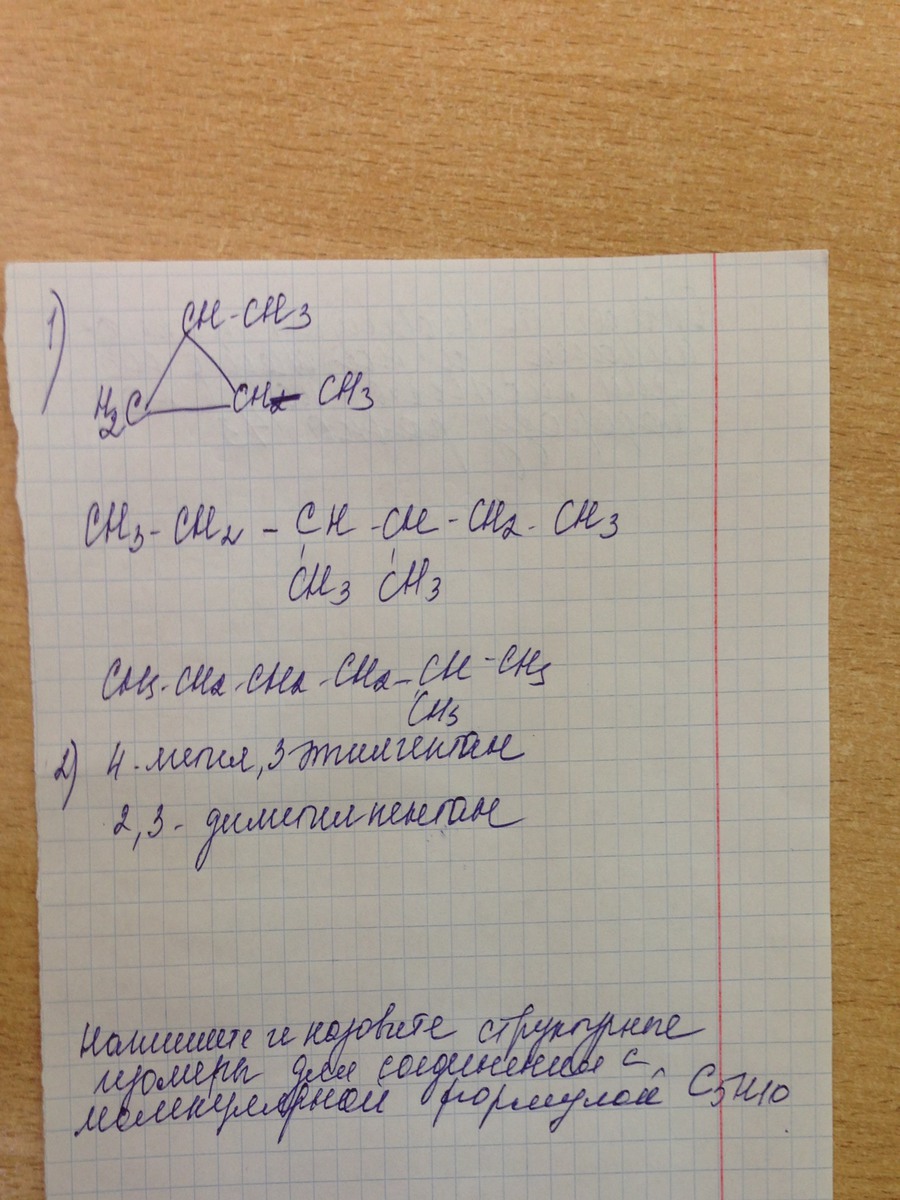 1)
CH-CH3
H2C CH2- CH3
CH3-CH2-CH-CH-CH2-CH3
CH3 CH3
CH3-CH2-CH2-CH2-CH-CH3
CH3
2) 4-метил, 3 этилгептан
2,3- диметилпентан
Напишите и назовите структурные
изомеры для соединения с
молекулярной формулой C5H10